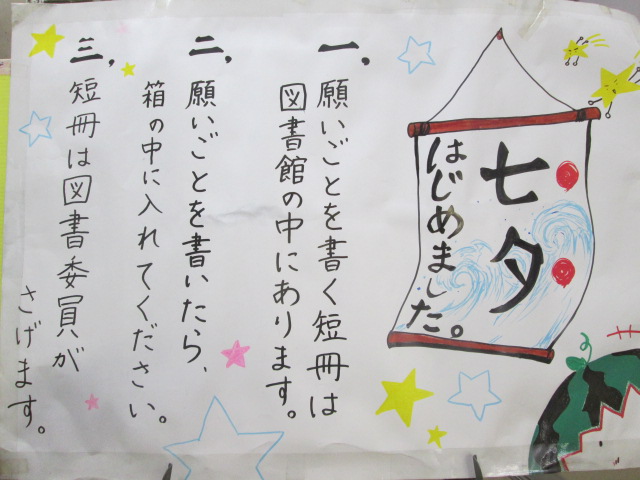 七夕
はじめました。
一、願いごとを書く短冊は
図書館の中にあります。
二、願いごとを書いたら、
箱の中に入れてください。
三、短冊は図書委員が
さげます。